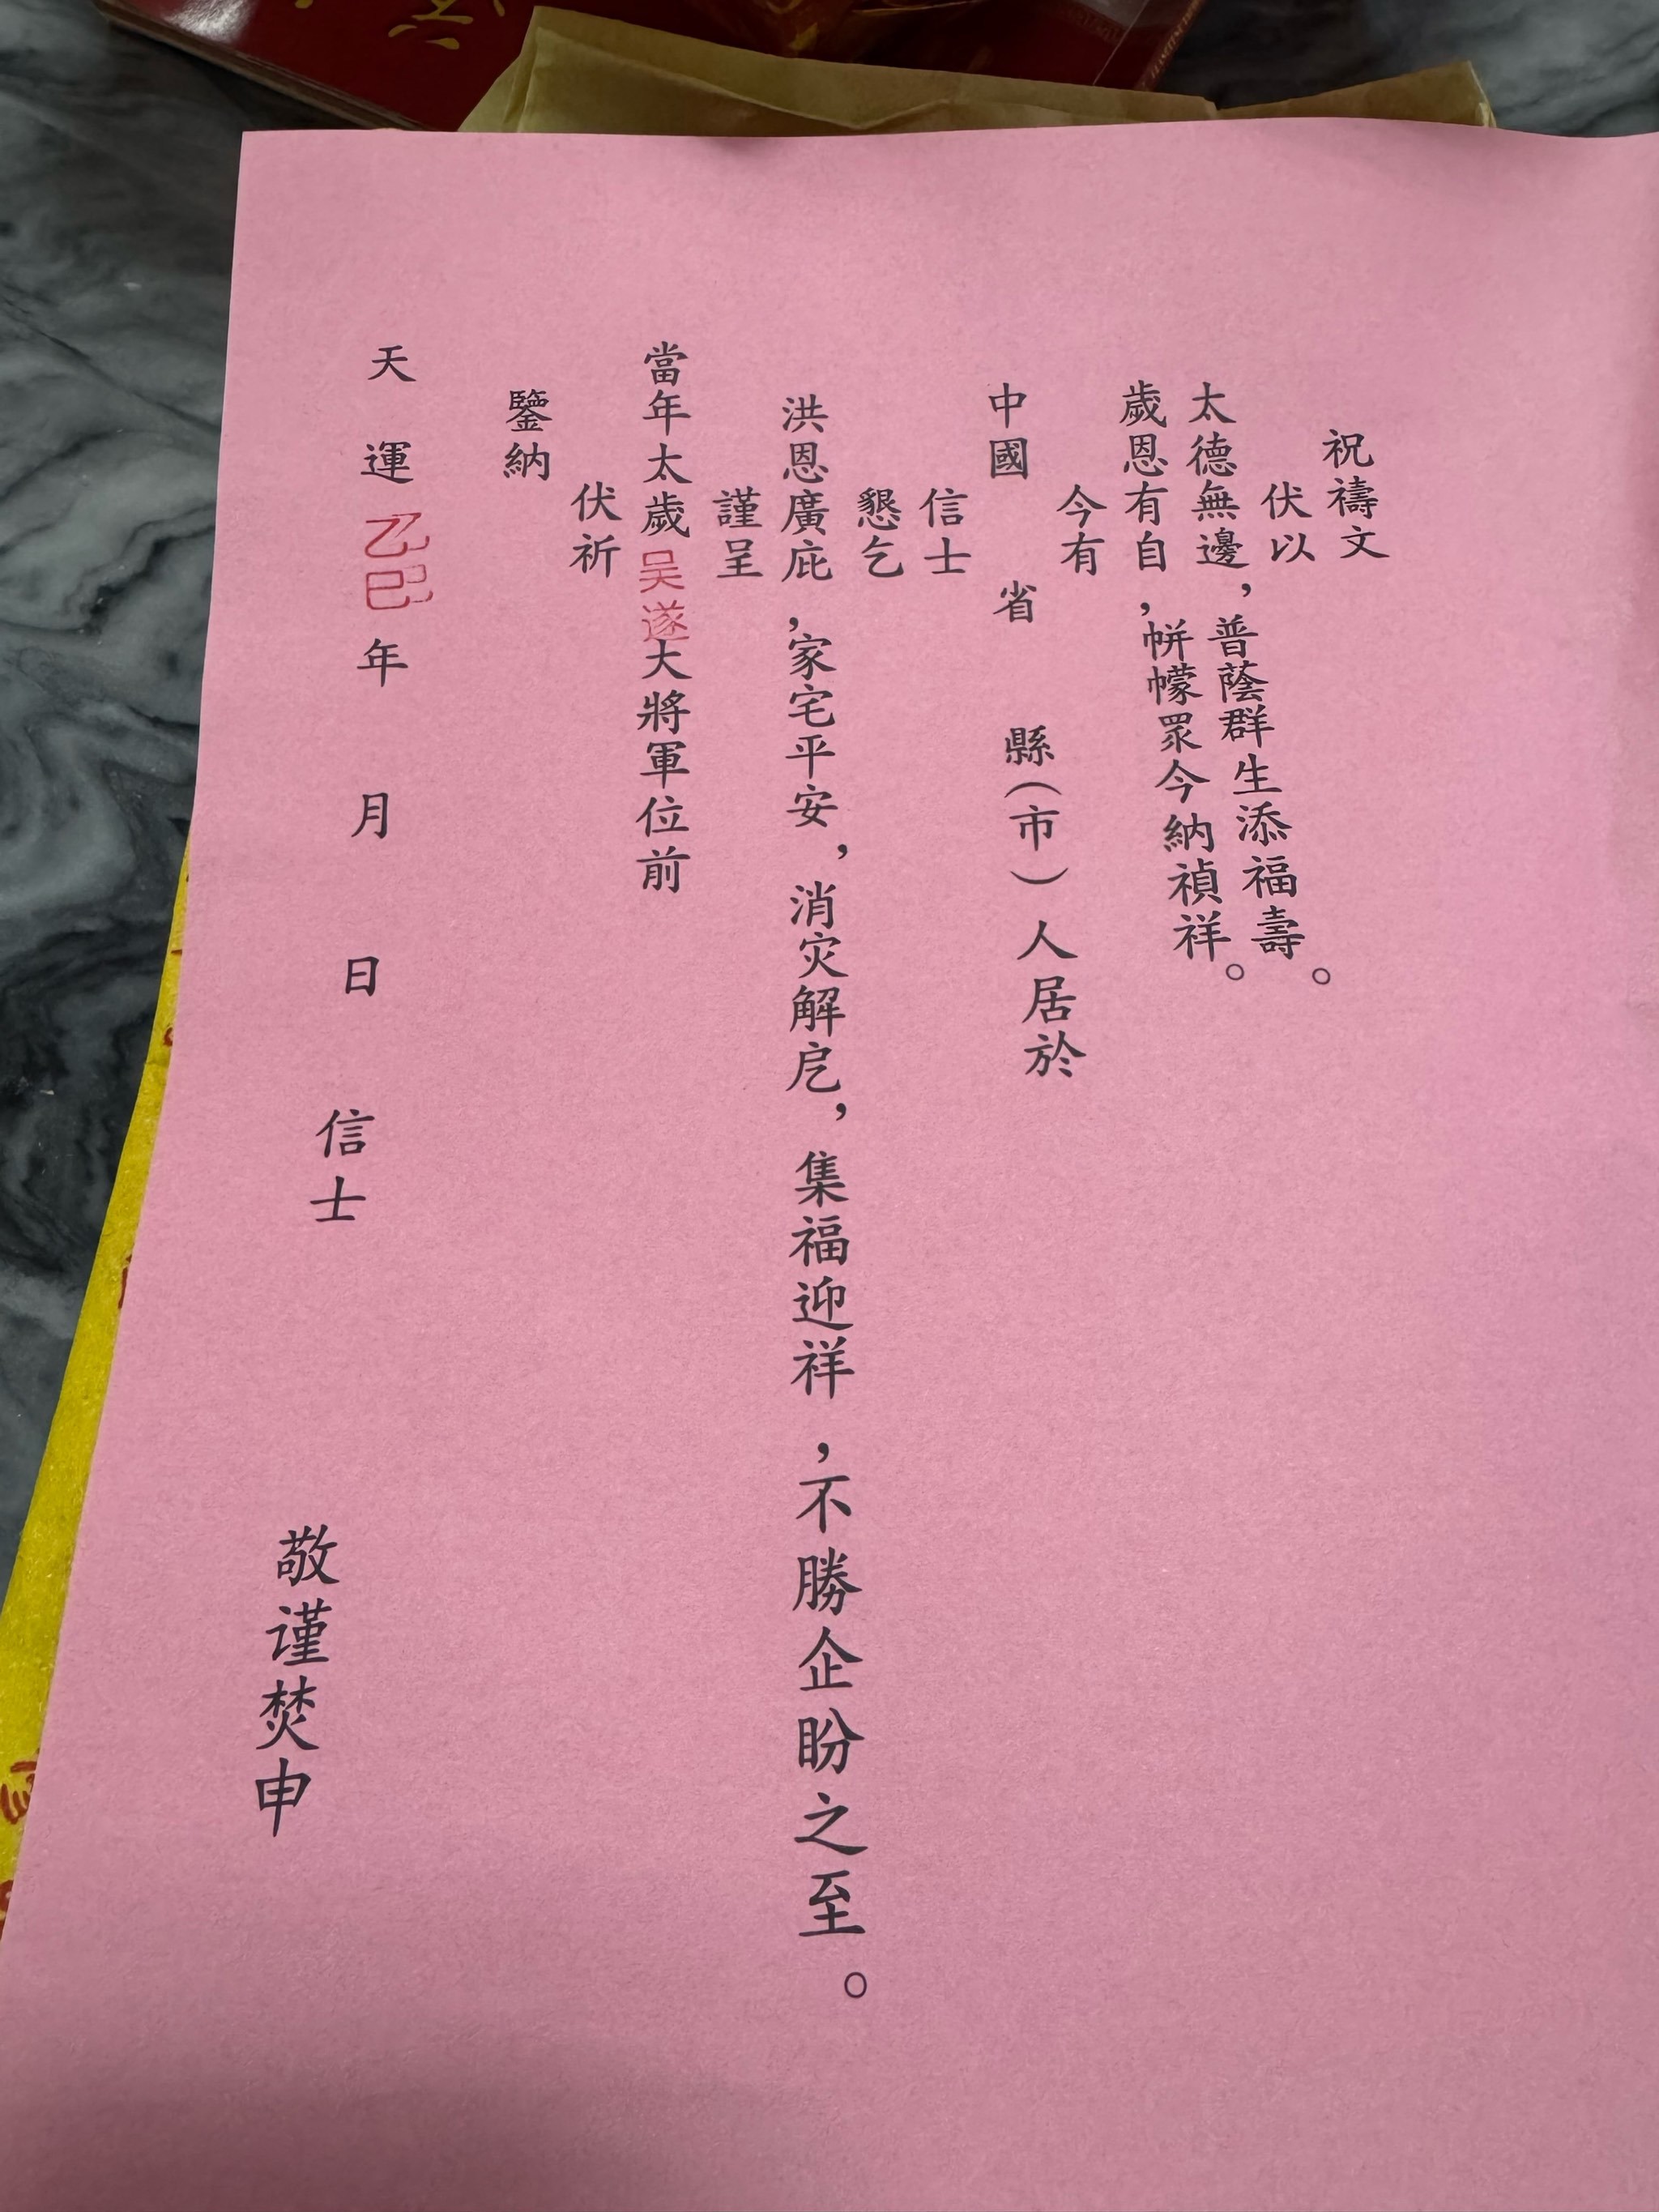 祝禱文
伏以
太德無邊，普蔭群生添福壽。
歲恩有自，帡幪眾今納禎祥。
今有
中國 省 縣（市）人居於
信士
懇乞
洪恩廣庇，家宅平安，消灾解戹，集福迎祥，不勝企盼之至。
謹呈
當年太歲吴遂大將軍位前
伏祈
鑒納
天運乙巳年 月 日 信士 敬谨焚申